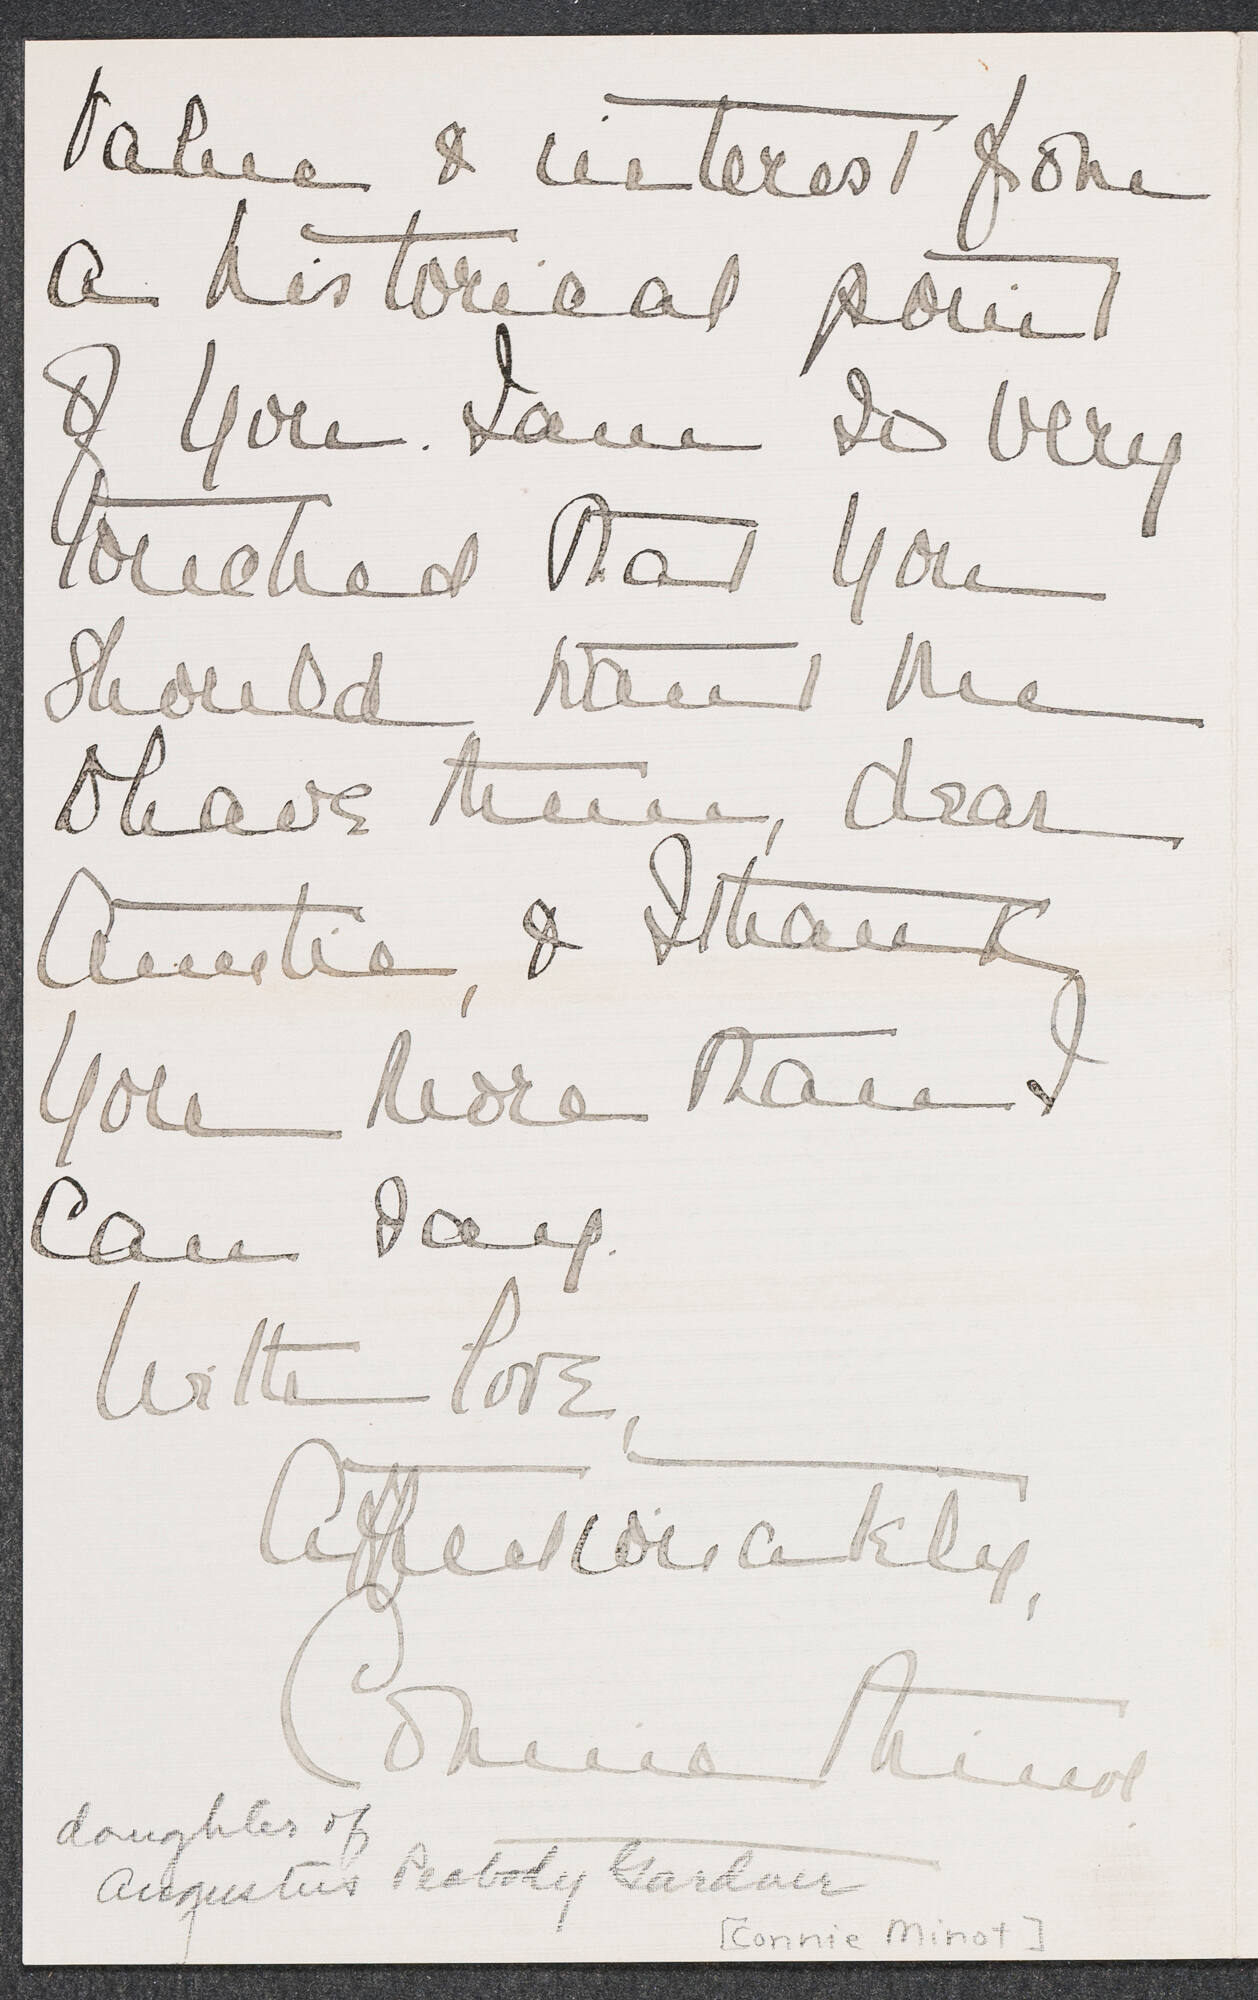 value & interest from
a historical point
of you. I am so very
touched that you
should want me
to have them, dear
Auntie, & I thank
you more than I
can say.
With love,
Affectionately,
Connie Minot
daughter of
Augustus Peabody Gardner
[Connie Minot]